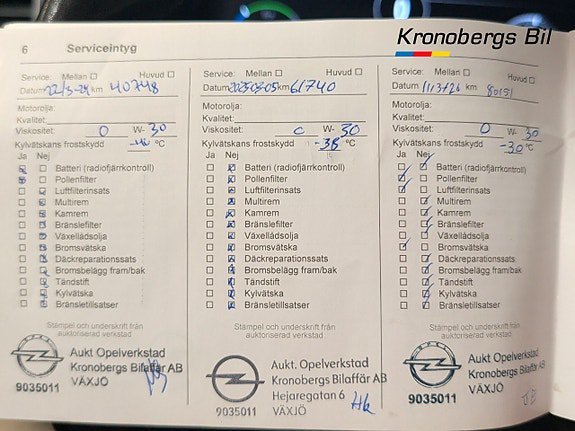 Kronobergs Bil
6 Serviceintyg
Service: Mellan Huvud
Datum 22/3-24 km 40748
Motorolja:
Kvalitet:
Viskositet: 0 W- 30
Kylvätskans frostskydd °C
Ja Nej
Batteri (radiofjärrkontroll)
Pollenfilter
Luftfilterinsats
Multirem
Kamrem
Bränslefilter
Växellådsolja
Bromsvätska
Däckreparationssats
Bromsbelägg fram/bak
Tändstift
Kylvätska
Bränsletillsatser
Stämpel och underskrift från
auktoriserad verkstad
OPEL
Aukt Opelverkstad
Kronobergs Bilaffär AB
VÄXJÖ
9035011
Service: Mellan Huvud
Datum 2025-03-05 km 61740
Motorolja:
Kvalitet:
Viskositet: 0 W- 30
Kylvätskans frostskydd -38 °C
Ja Nej
Batteri (radiofjärrkontroll)
Pollenfilter
Luftfilterinsats
Multirem
Kamrem
Bränslefilter
Växellådsolja
Bromsvätska
Däckreparationssats
Bromsbelägg fram/bak
Tändstift
Kylvätska
Bränsletillsatser
Stämpel och underskrift från
auktoriserad verkstad
Aukt. Opelverkstad
Kronobergs Bilaffär AB
Hejaregatan 6
VÄXJÖ
9035011
HK
Service: Mellan Huvud
Datum 11/3/26 km 80151
Motorolja:
Kvalitet:
Viskositet: 0 W- 30
Kylvätskans frostskydd -30 °C
Ja Nej
Batteri (radiofjärrkontroll)
Pollenfilter
Luftfilterinsats
Multirem
Kamrem
Bränslefilter
Växellådsolja
Bromsvätska
Däckreparationssats
Bromsbelägg fram/bak
Tändstift
Kylvätska
Bränsletillsatser
Stämpel och underskrift från
auktoriserad verkstad
Aukt Opelverkstad
Kronobergs Bilaffär AB
VÄXJÖ
9035011